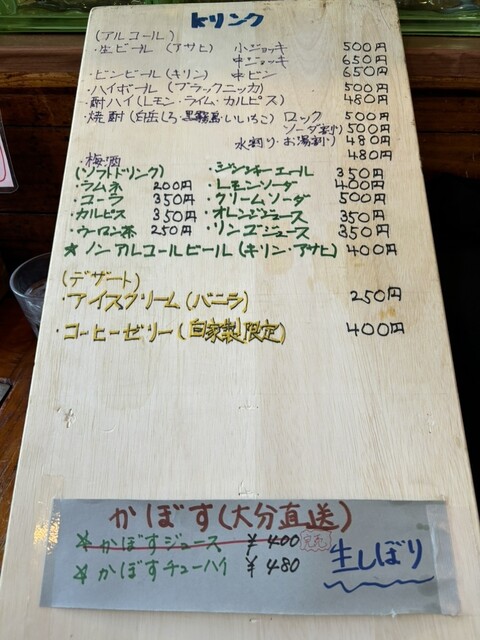 ドリンク
(アルコール)
・生ビール (アサヒ) 小ジョッキ 500円
中ジョッキ 650円
・ビンビール(キリン) 中ビン 650円
・ハイボール(ブラックニッカ) 500円
・酎ハイ(レモン・ライム・カルピス) 480円
・焼酎(白岳しろ・黒霧島・いいちこ) ロック 500円
ソーダ割り 500円
水割り・お湯割り 480円
・梅酒 480円
(ソフトドリンク) ・ジンジャーエール 350円
・ラムネ 200円 ・レモンソーダ 400円
・コーラ 350円 ・クリームソーダ 500円
・カルピス 350円 ・オレンジジュース 350円
・ウーロン茶 250円 ・リンゴジュース 350円
★ノンアルコールビール(キリン・アサヒ) 400円
(デザート)
・アイスクリーム(バニラ) 250円
・コーヒーゼリー(自家製限定) 400円
かぼす(大分直送)
☆かぼすジュース ¥400 完売
☆かぼすチューハイ ¥480
生しぼり